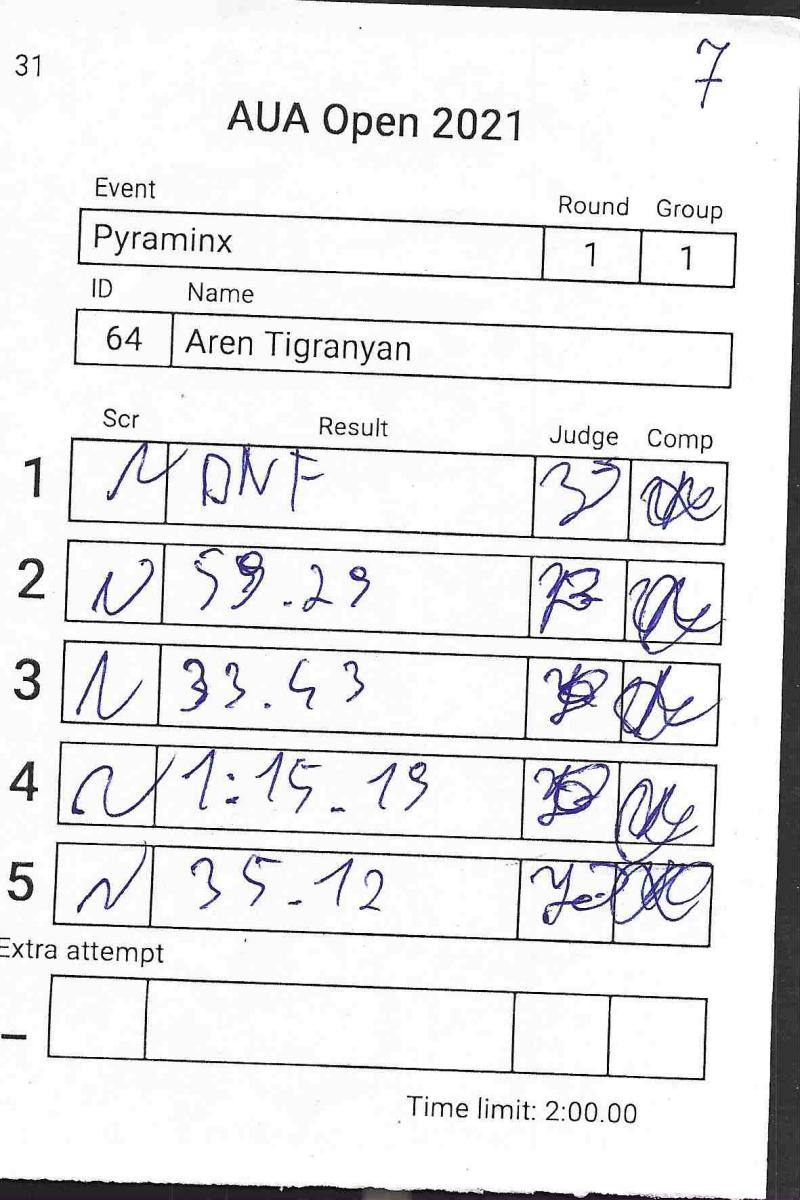 31
7
AUA Open 2021
Event Round Group
Pyraminx 1 1
ID Name
64 Aren Tigranyan
Scr Result Judge Comp
1 DNF
2 59.29
3 33.43
4 1:15.19
5 35.12
Extra attempt
–
Time limit: 2:00.00